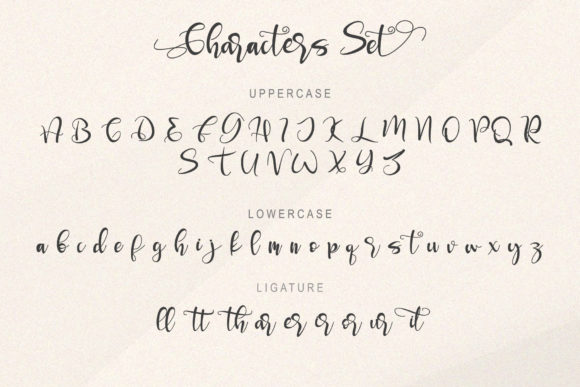 Characters Set
UPPERCASE
A B C D E F G H I J K L M N O P Q R
S T U V W X Y Z
LOWERCASE
a b c d e f g h i j k l m n o p q r s t u v w x y z
LIGATURE
ll tt th ar er r or ur it